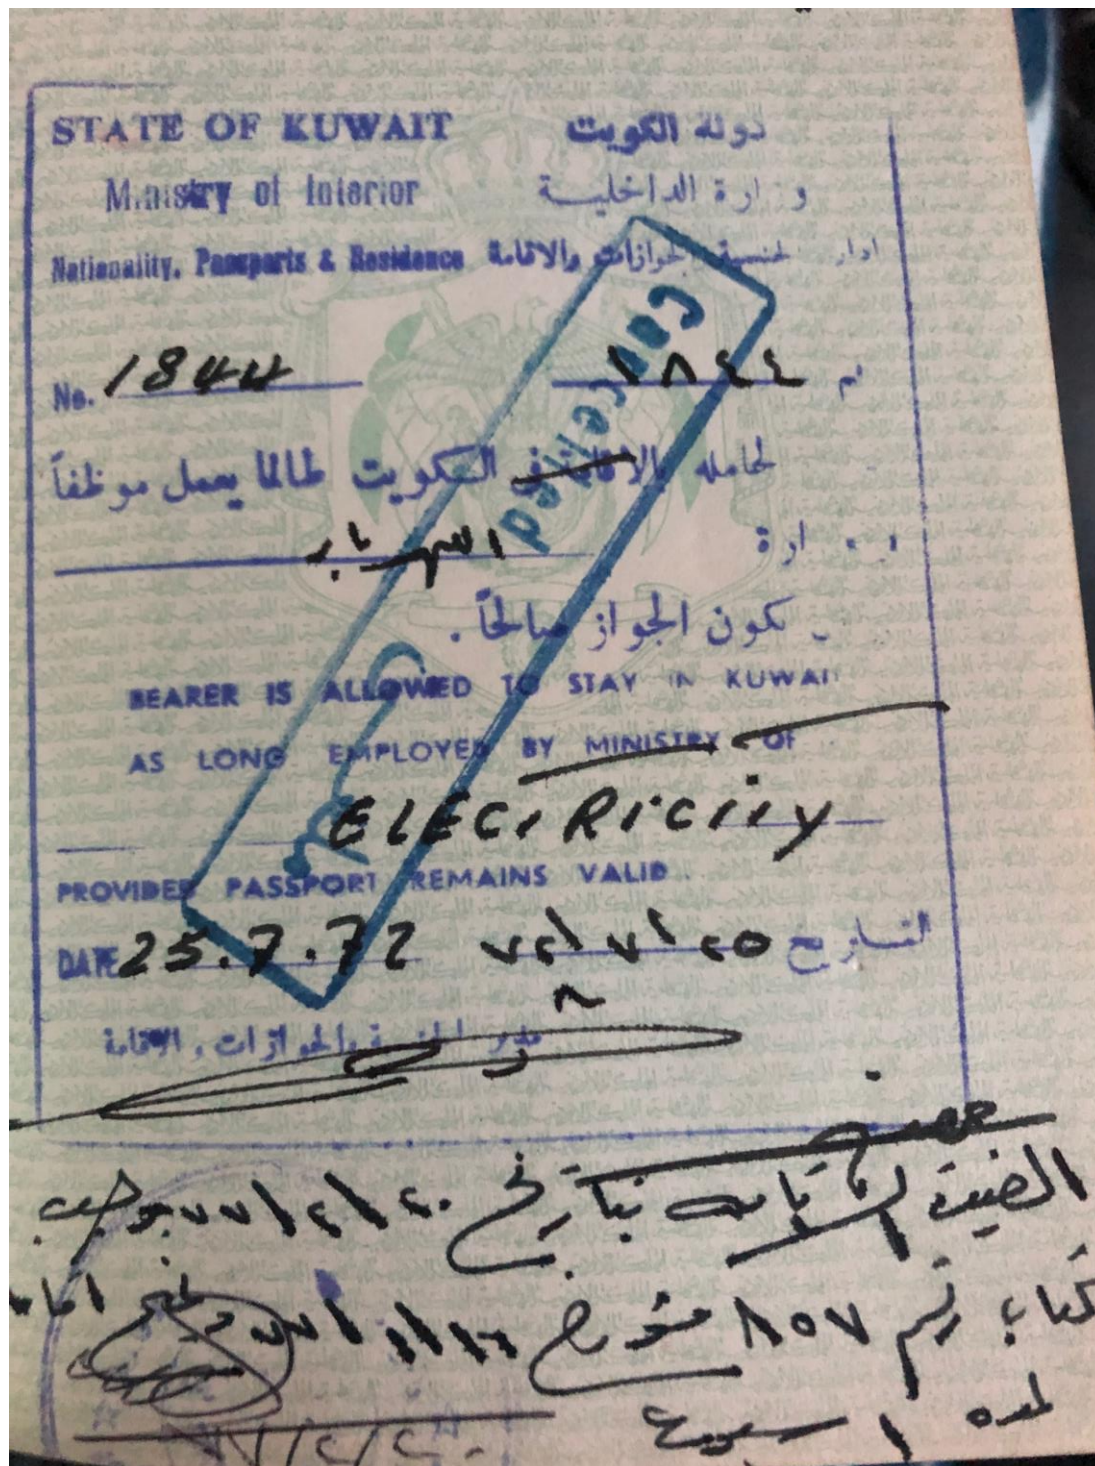 STATE OF KUWAIT دولة الكويت
Ministry of Interior وزارة الداخلية
Nationality, Passports & Residence الجوازات والاقامة
No. 1844 ١٨٤٤
لحامله بالاقامة في الكويت طالما يعمل موظفاً
الكهرباء
يكون الجواز صالحاً.
BEARER IS ALLOWED TO STAY IN KUWAIT
AS LONG EMPLOYED BY MINISTRY OF
ELECTRICITY
PROVIDED PASSPORT REMAINS VALID.
DATE 25.7.72 التاريخ ٢٥/٧/٧٢
مدير الجنسية والجوازات والاقامة
Cancelled
بتاريخ ٢٠/٢/٧٧ بموجب
كتاب رقم ٨٥٧
لمدة ١ سبوع